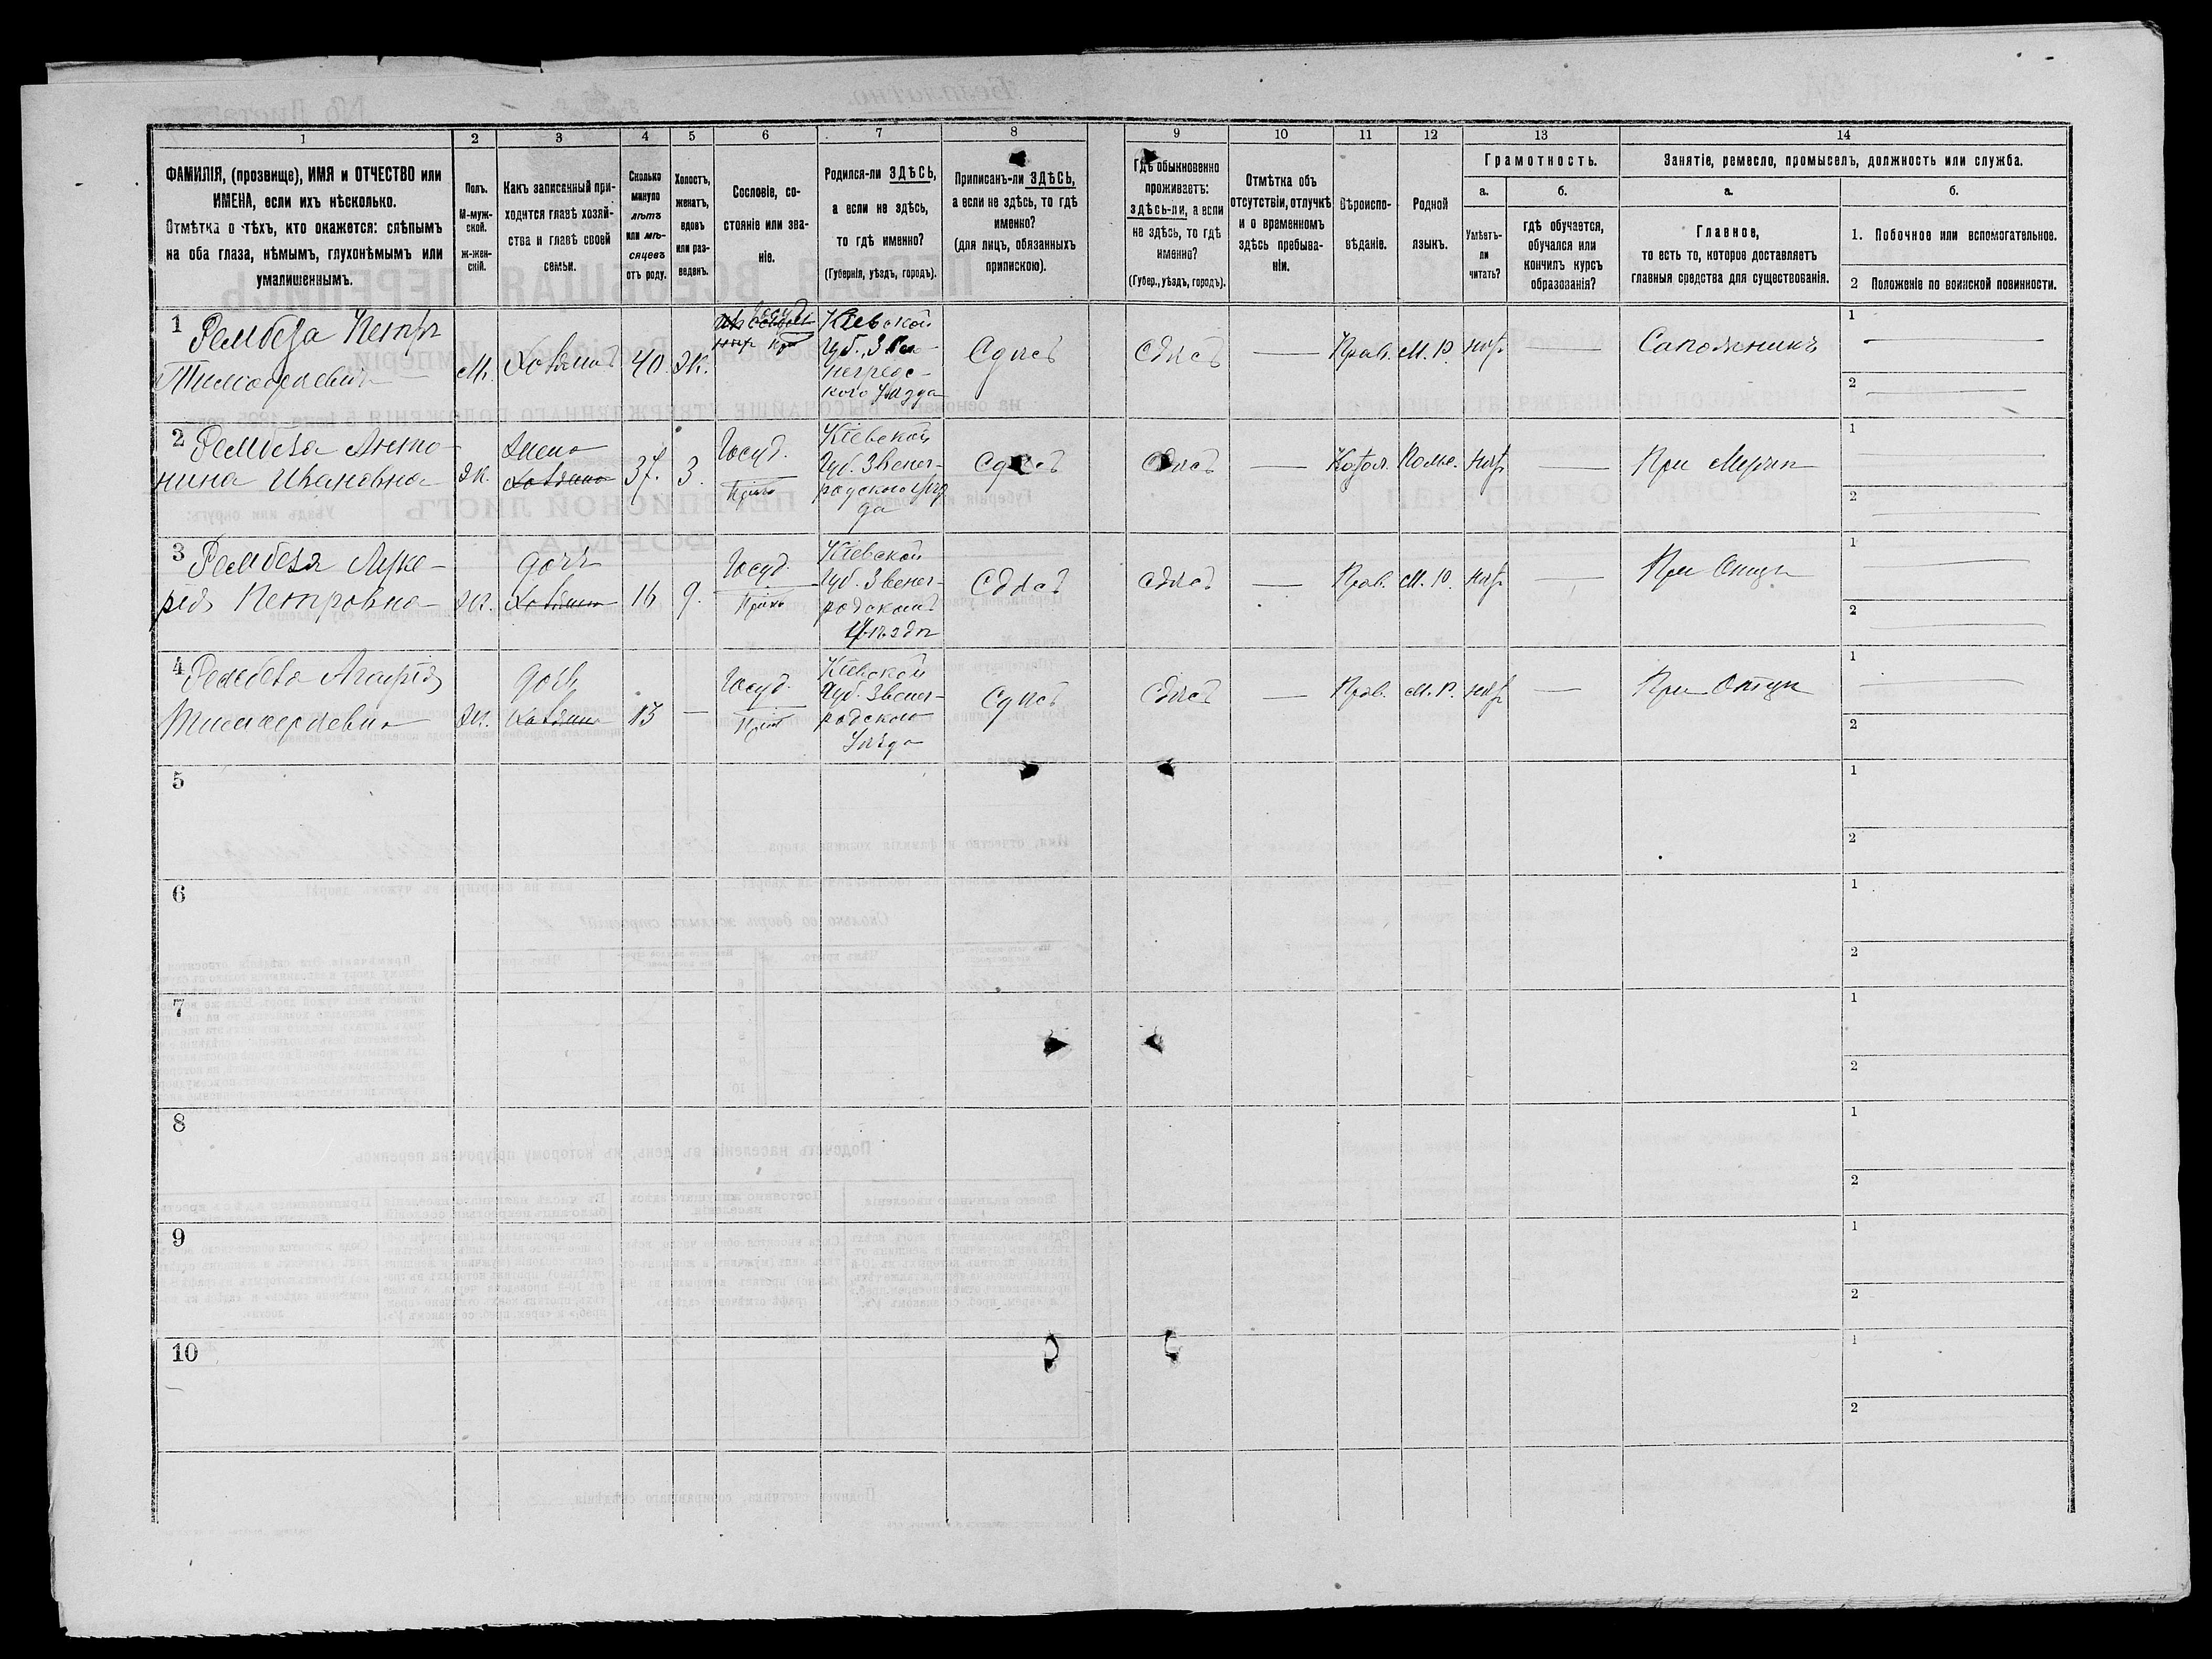 1
2
3
4
5
6
7
8
9
10
11
12
13
14
ФАМИЛІЯ, (прозвище), ИМЯ и ОТЧЕСТВО или
ИМЕНА, если ихъ нѣсколько.
Отмѣтка о тѣхъ, кто окажется: слѣпымъ
на оба глаза, нѣмымъ, глухонѣмымъ или
умалишеннымъ.
Полъ.
М-муж-
ской.
ж-жен-
скій.
Какъ записанный при-
ходится главѣ хозяй-
ства и главѣ своей
семьи.
Сколько
минуло
лѣтъ
или мѣ-
сяцевъ
отъ роду.
Холостъ,
женатъ,
вдовъ
или раз-
веденъ.
Сословіе, со-
стояніе или зва-
ніе.
Родился-ли ЗДѢСЬ,
а если не здѣсь,
то гдѣ именно?
(Губернія, уѣздъ, городъ).
Приписанъ-ли ЗДѢСЬ,
а если не здѣсь, то гдѣ
именно?
(для лицъ, обязанныхъ
припискою).
Гдѣ обыкновенно
проживаетъ:
здѣсь-ли, а если
не здѣсь, то гдѣ
именно?
(Губер., уѣздъ, городъ).
Отмѣтка объ
отсутствіи, отлучкѣ
и о временномъ
здѣсь пребыва-
ніи.
Вѣроиспо-
вѣданіе.
Родной
языкъ.
Грамотность.
а.
Умѣетъ-
ли
читать?
б.
гдѣ обучается,
обучался или
кончилъ курсъ
образованія?
Занятіе, ремесло, промыселъ, должность или служба.
а.
Главное,
то есть то, которое доставляетъ
главныя средства для существованія.
б.
1. Побочное или вспомогательное.
2 Положеніе по воинской повинности.
1 Рембеза Петръ
Тимофеевичъ
М.
Хозяинъ
40.
Ж.
Кіевской
Губ.
Здѣсь
Здѣсь
—
Прав.
М. Р.
нѣт
—
Сапожникъ
1 —
2 —
2 Рембеза Анто-
нина Ивановна
Ж.
Жена
Хозяина
37.
З.
Госуд.
Кіевской
Губ. Звени-
родского Уѣз
да
Здѣсь
Здѣсь
—
Катол.
Польс.
нѣт
—
При Мужи
1 —
2 —
3 Рембеза Луке-
рія Петровна
Ж.
дочь
Хозяина
16
д.
Госуд.
Кіевской
Губ. Звени-
родскаго
Уѣзда
Здѣсь
Здѣсь
—
Прав.
М. Р.
нѣт
—
При Отцѣ
1 —
2 —
4 Рембеза Агафія
Ж.
дочь
Хозяина
13
—
Госуд.
Кіевской
Губ. Звени-
родского
Уѣзда
Здѣсь
Здѣсь
—
Прав.
М. Р.
нѣт
—
При Отцѣ
1 —
2
5
1
2
6
1
2
7
1
2
8
1
2
9
1
2
10
1
2